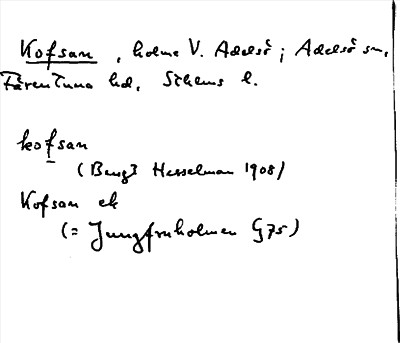 Kofsan, holme V. Adelsö; Adelsö sn,
Färentuna hd, Sthlms l.
kofsan
(Bengt Hesselman 1908)
Kofsan ek
(= Jungfruholmen G75)